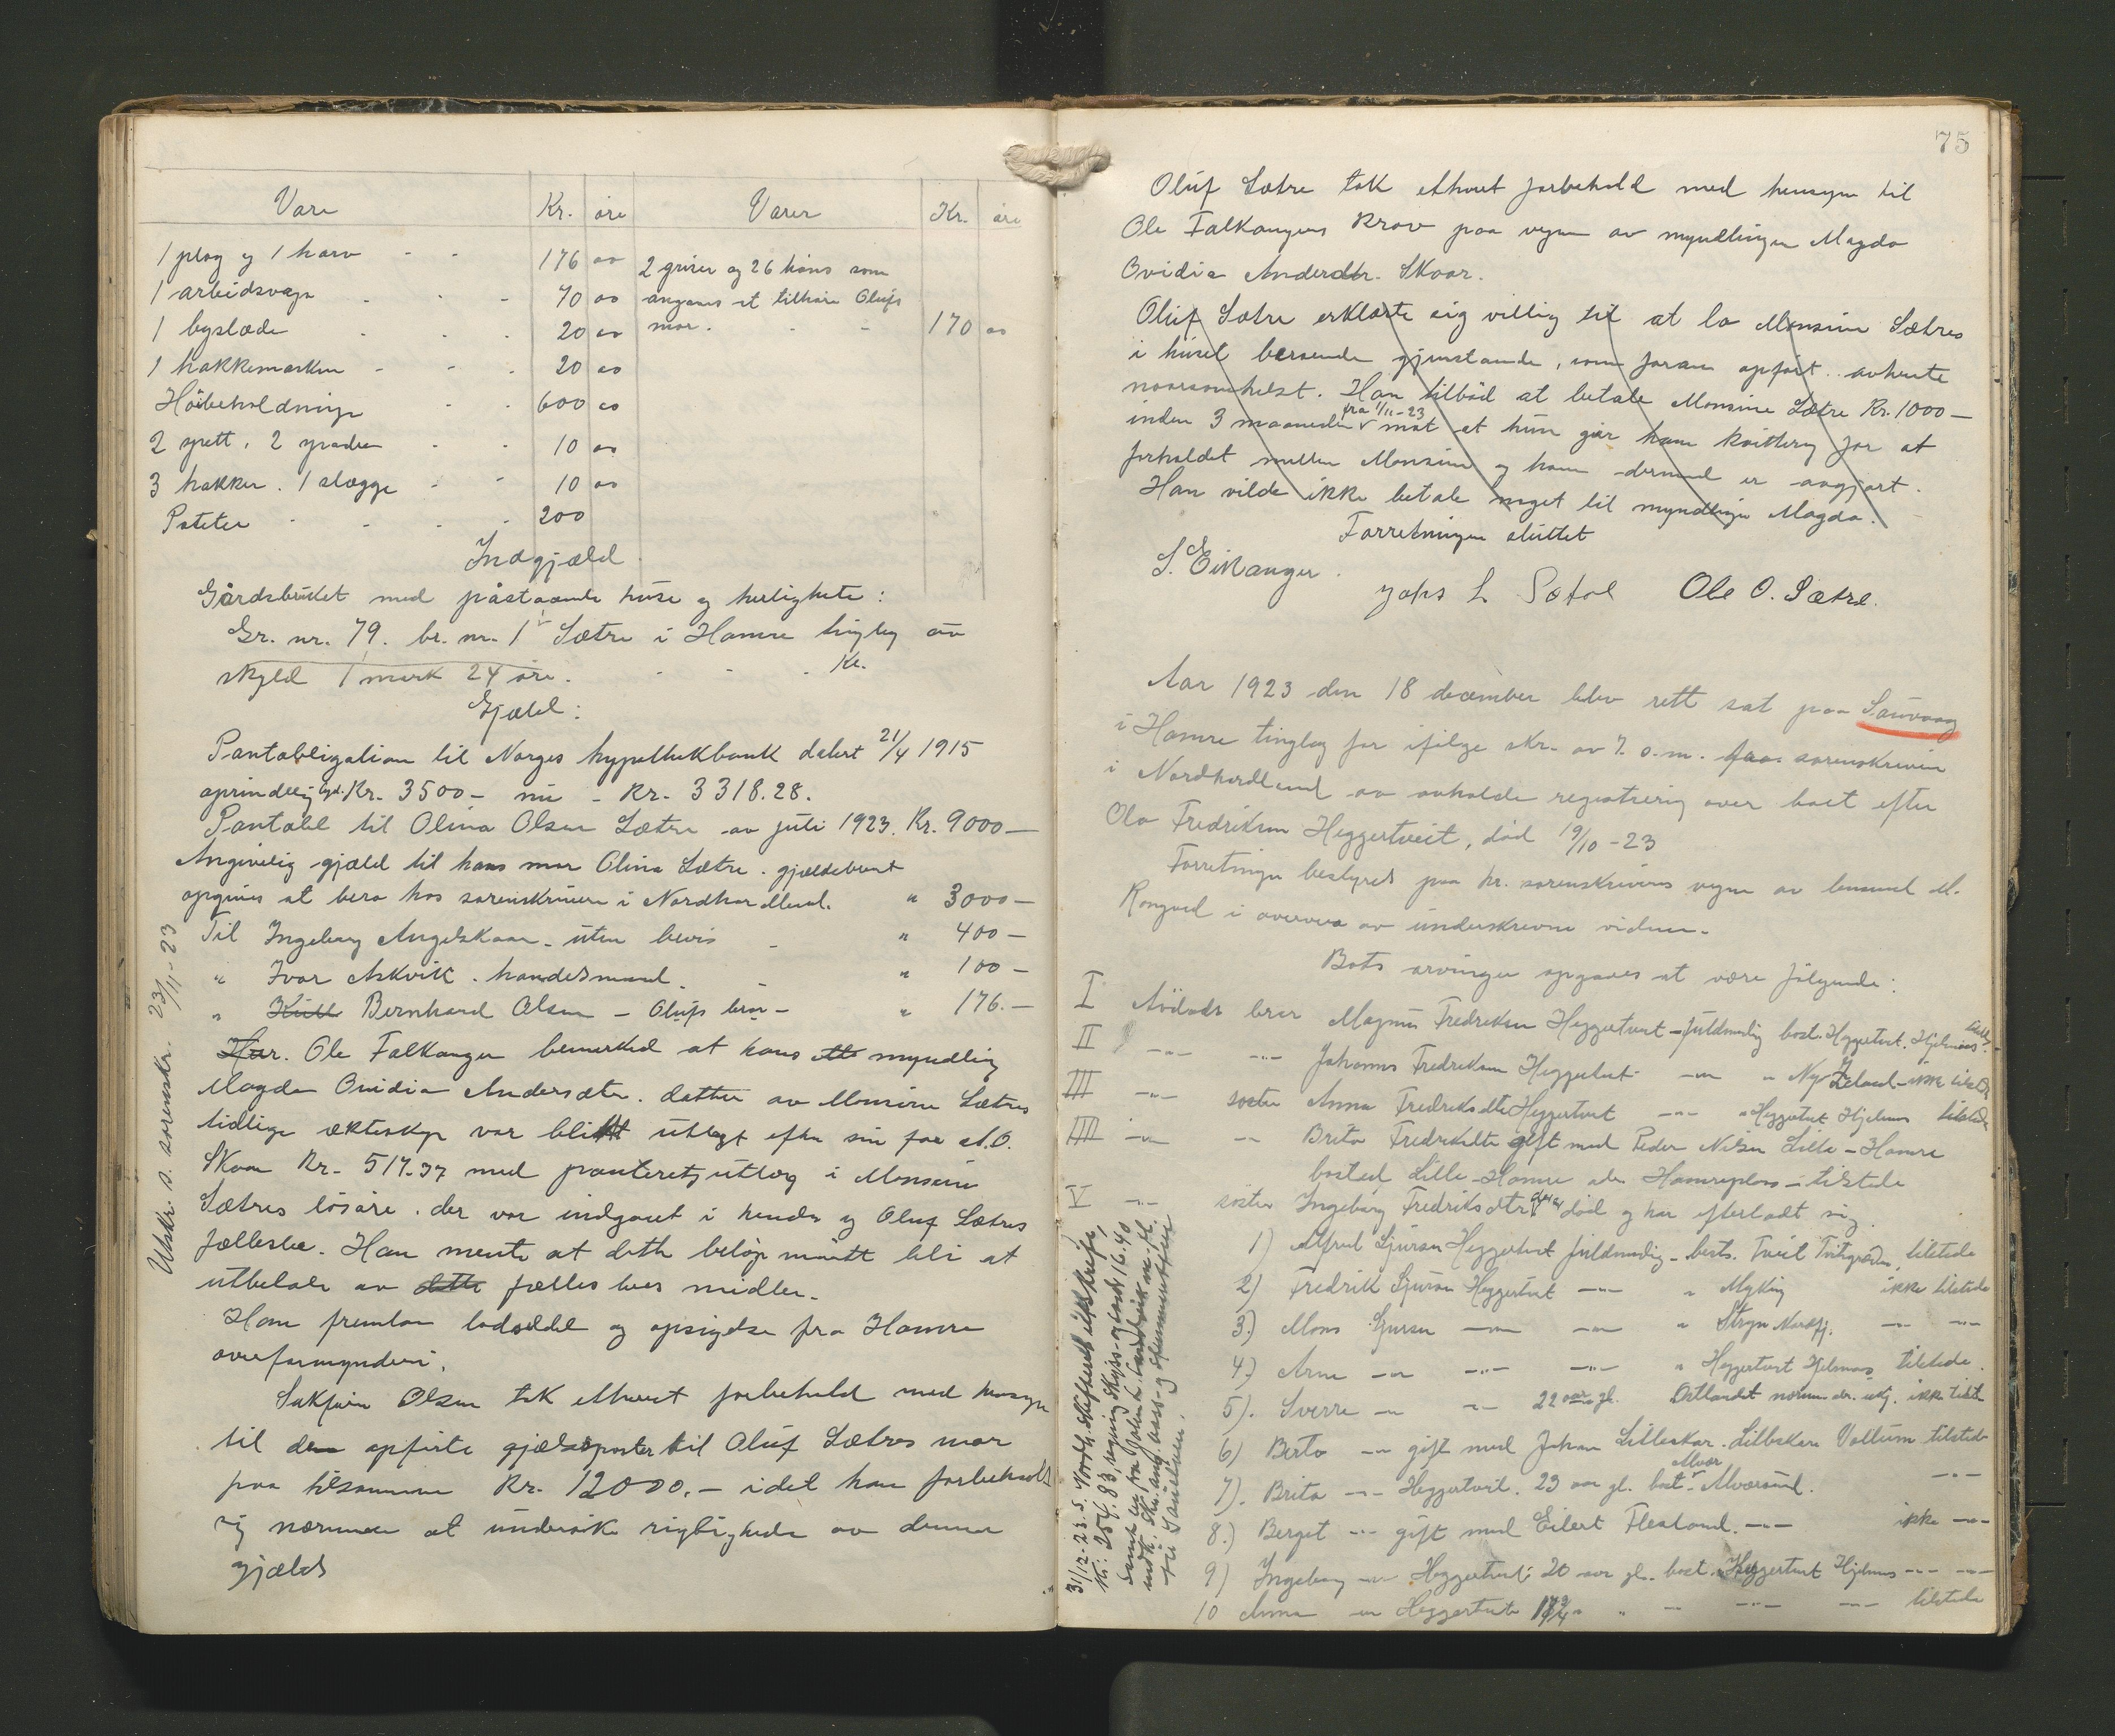 Vare Kr. øre Varer Kr. øre
1 plog og 1 harv - - 176 00
1 arbeidsvogn - - - 70 00
1 byslæde - - - 20 00
1 hakkemaskin - - - 20 00
Höibeholdninge - - 600 00
2 spett, 2 spader - - 10 00
3 hakker. 1 slægge - - 10 00
Poteter - - - - 200
2 griser og 26 höns som
angaves at tilhöre Olufs
mor. - - 170 00
Indgjæld
Gårdsbruket med påstaaende huse og herligheter:
Gr. nr. 79. br. nr. 1 Sætre i Hamre tinglag av
skyld 1 mark 24 øre. - - - Kr.
Gjæld:
Pantobligation til Norges hypothekbank datert 21/4 1915
oprindelig Kr. 3500 - nu - Kr. 3318.28.
Pantobl til Olina Olsen Sætre av juli 1923. Kr. 9000 -
Angivelig gjæld til hans mor Olina Sætre. gjældsbrevet
opgives at bero hos sorenskriveren i Nordhordland. " 3000 -
Til Ingeborg Angelskaar - uten bevis - " 400 -
" Ivar Askvik. handelsmand. " 100 -
" Bernhard Olsen - Olufs bror - " 176. -
Utskr. s. sorenskr. 23/11-23
Har. Ole Falkanger bemerked at hans myndling
Magda Ovidia Andersdtr. datter av Monsine Sætres
tidligere ækteskap var blit utlagt efter sin far A.O.
Skaar Kr. 517.37 med panteretsutlæg i Monsine
Sætres lösöre. der var indgaaet i hendes og Oluf Sætres
fællesbo. Han mente at dette belöp maatte bli at
utbetale av dette fælles boes midler.
Han fremla lodseddel og opsigelse fra Hamre
overformynderi.
Sakförer Olsen tok ethvert forbehold med hensyn
til den opförte gjældsposter til Oluf Sætres mor
paa tilsammen Kr. 12000. - idet han forbeholdt
sig nærmere at undersöke rigtigheden av denne
gjæld
75
Oluf Sætre tok ethvert forbehold med hensyn til
Ole Falkangers Krav paa vegne av myndlingen Magda
Ovidia Andersdtr. Skaar.
Oluf Sætre erklærte sig villig til at la Monsine Sætres
i huset beroende gjenstande, som foran opfört avhente
naarsomhelst. Han tilböd at betale Monsine Sætre Kr. 1000 -
inden 3 maaneder fra 1/11-23 mot at hun gir ham kvittering for at
forholdet mellem Monsine og ham dermed er avgjort.
Han vilde ikke betale noget til myndlingen Magda.
Forretningen sluttet
S. Eikanger. Johs L Sætre Ole O. Sætre.
Aar 1923 den 18 december blev rett sat paa Sauvaag
i Hamre tinglag for ifölge skr. av 7. d.m. fra sorenskriveren
i Nordhordland av avholde registrering over boet efter
Ola Fredriksen Heggertveit, död 19/10-23
Forretningen bestyres paa hr. sorenskriverens vegne av lensmand M.
Rongved i overvær av underskrevne vidner.
Boets arvinger opgaves at være fölgende:
I Avdödes bror Magnus Fredriksen Heggertveit - fuldmyndig bost. Heggertveit. Hjelmaas tilstede
II -"- -"- Johannes Fredriksen Heggertveit -"- " Ny Zeland - ikke tilstede
III -"- söster Anna Fredriksdtr Heggertveit -"- " Heggertveit Hjelmaas tilstede
IIII -"- -"- Brita Fredriksdtr gift med Peder Nilsen Lille-Hamre
bosted Lille-Hamre adr. Hamreplass - tilstede
V -"- söster Ingeborg Fredriksdtr der er död og har efterladt sig
1) Alfred Sjursen Heggertveit fuldmyndig - bosts. Tveit Tveitgraden, tilstede
2) Fredrik Sjursen Heggertveit -"- " Myking ikke tilstede
3) Mons Sjursen -"- -"- " Stryn Nordfj. -"- -"-
4) Arne -"- -"- -"- " Heggertveit Hjelmaas tilstede.
5). Sverre -"- -"- 22 aar gl. Östlandet nærmere adr. ukj. ikke tilst
6) Berta -"- gift med Johan Lilleskar. Lilleskare Vallum tilstede
7). Brita -"- Heggertveit. 23 aar gl. bost. Alver Alversund. -"-
8.) Berget -"- gift med Eilert Flesland. -"- ikke -"-
9) Ingeborg -"- Heggertveit 20 aar gl. bost. Heggertveit Hjelmaas -"- -"-
10 Anna -"- Heggertveit " -"- -"- tilstede
31/12-23. s. Nordh. skifterett utskrift,
Kr: 254.83, regning Skyss- og kost 16.40